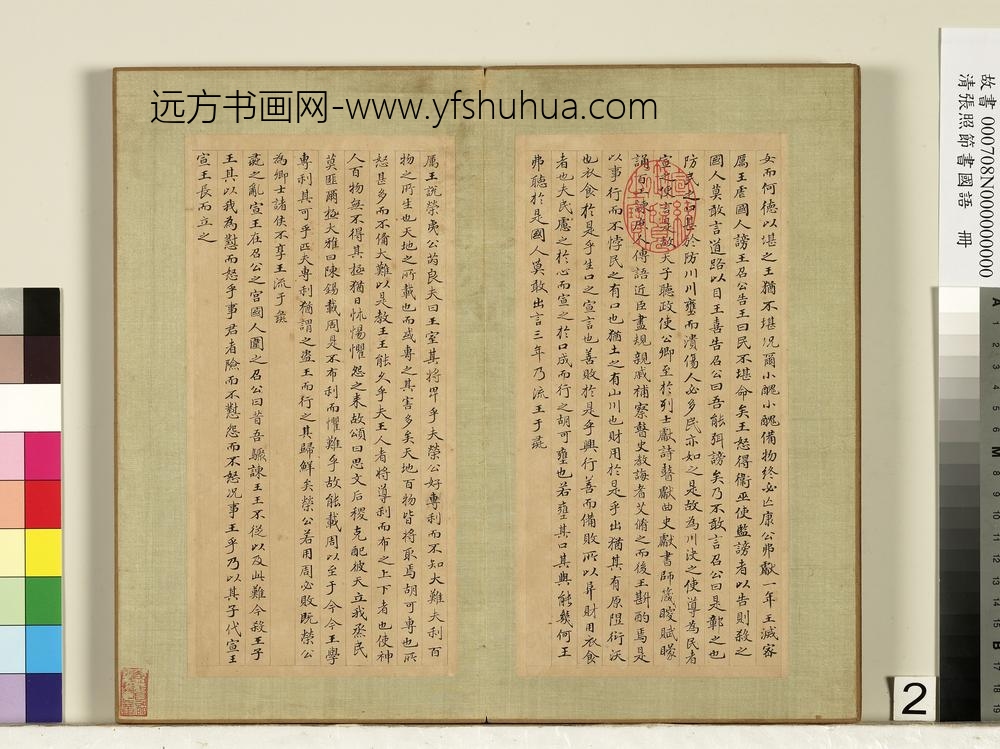 远方书画网-www.yfshuhua.com
故書 000708N000000000
清張照節書國語 冊
女而何德以堪之王猶不堪况爾小醜小醜備物終必亡康公弗獻一年王滅密
厲王虐國人謗王召公告王曰民不堪命矣王怒得衛巫使監謗者以告則殺之
國人莫敢言道路以目王喜告召公曰吾能弭謗矣乃不敢言召公曰是鄣之也
防民之口甚於防川川壅而潰傷人必多民亦如之是故為川決之使導為民者
宣之使言是故天子聽政使公卿至於列士獻詩瞽獻曲史獻書師箴瞍賦矇
誦百工諫庶人傳語近臣盡規親戚補察瞽史教誨耆艾脩之而後王斟酌焉是
以事行而不悖民之有口也猶土之有山川也財用於是乎出猶其有原隰衍沃
也衣食於是乎生口之宣言也善敗於是乎興行善而備敗所以阜財用衣食
者也夫民慮之於心而宣之於口成而行之胡可壅也若壅其口其與能幾何王
弗聽於是國人莫敢出言三年乃流王于彘
厲王說榮夷公芮良夫曰王室其將卑乎夫榮公好專利而不知大難夫利百
物之所生也天地之所載也而或專之其害多矣天地百物皆將取焉胡可專也所
怒甚多而不備大難以是教王王能久乎夫王人者將導利而布之上下者也使神
人百物無不得其極猶日怵惕懼怨之来故頌曰思文后稷克配彼天立我烝民
莫匪爾極大雅曰陳錫載周是不布利而懼難乎故能載周以至于今今王學
專利其可乎匹夫專利猶謂之盜王而行之其歸鮮矣榮公若用周必敗既榮公
為卿士諸侯不享王流于彘
彘之亂宣王在召公之宮國人圍之召公曰昔吾驟諫王王不從以及此難今殺王子
王其以我為懟而怒乎事君者險而不懟怨而不怒况事王乎乃以其子代宣王
宣王長而立之
2